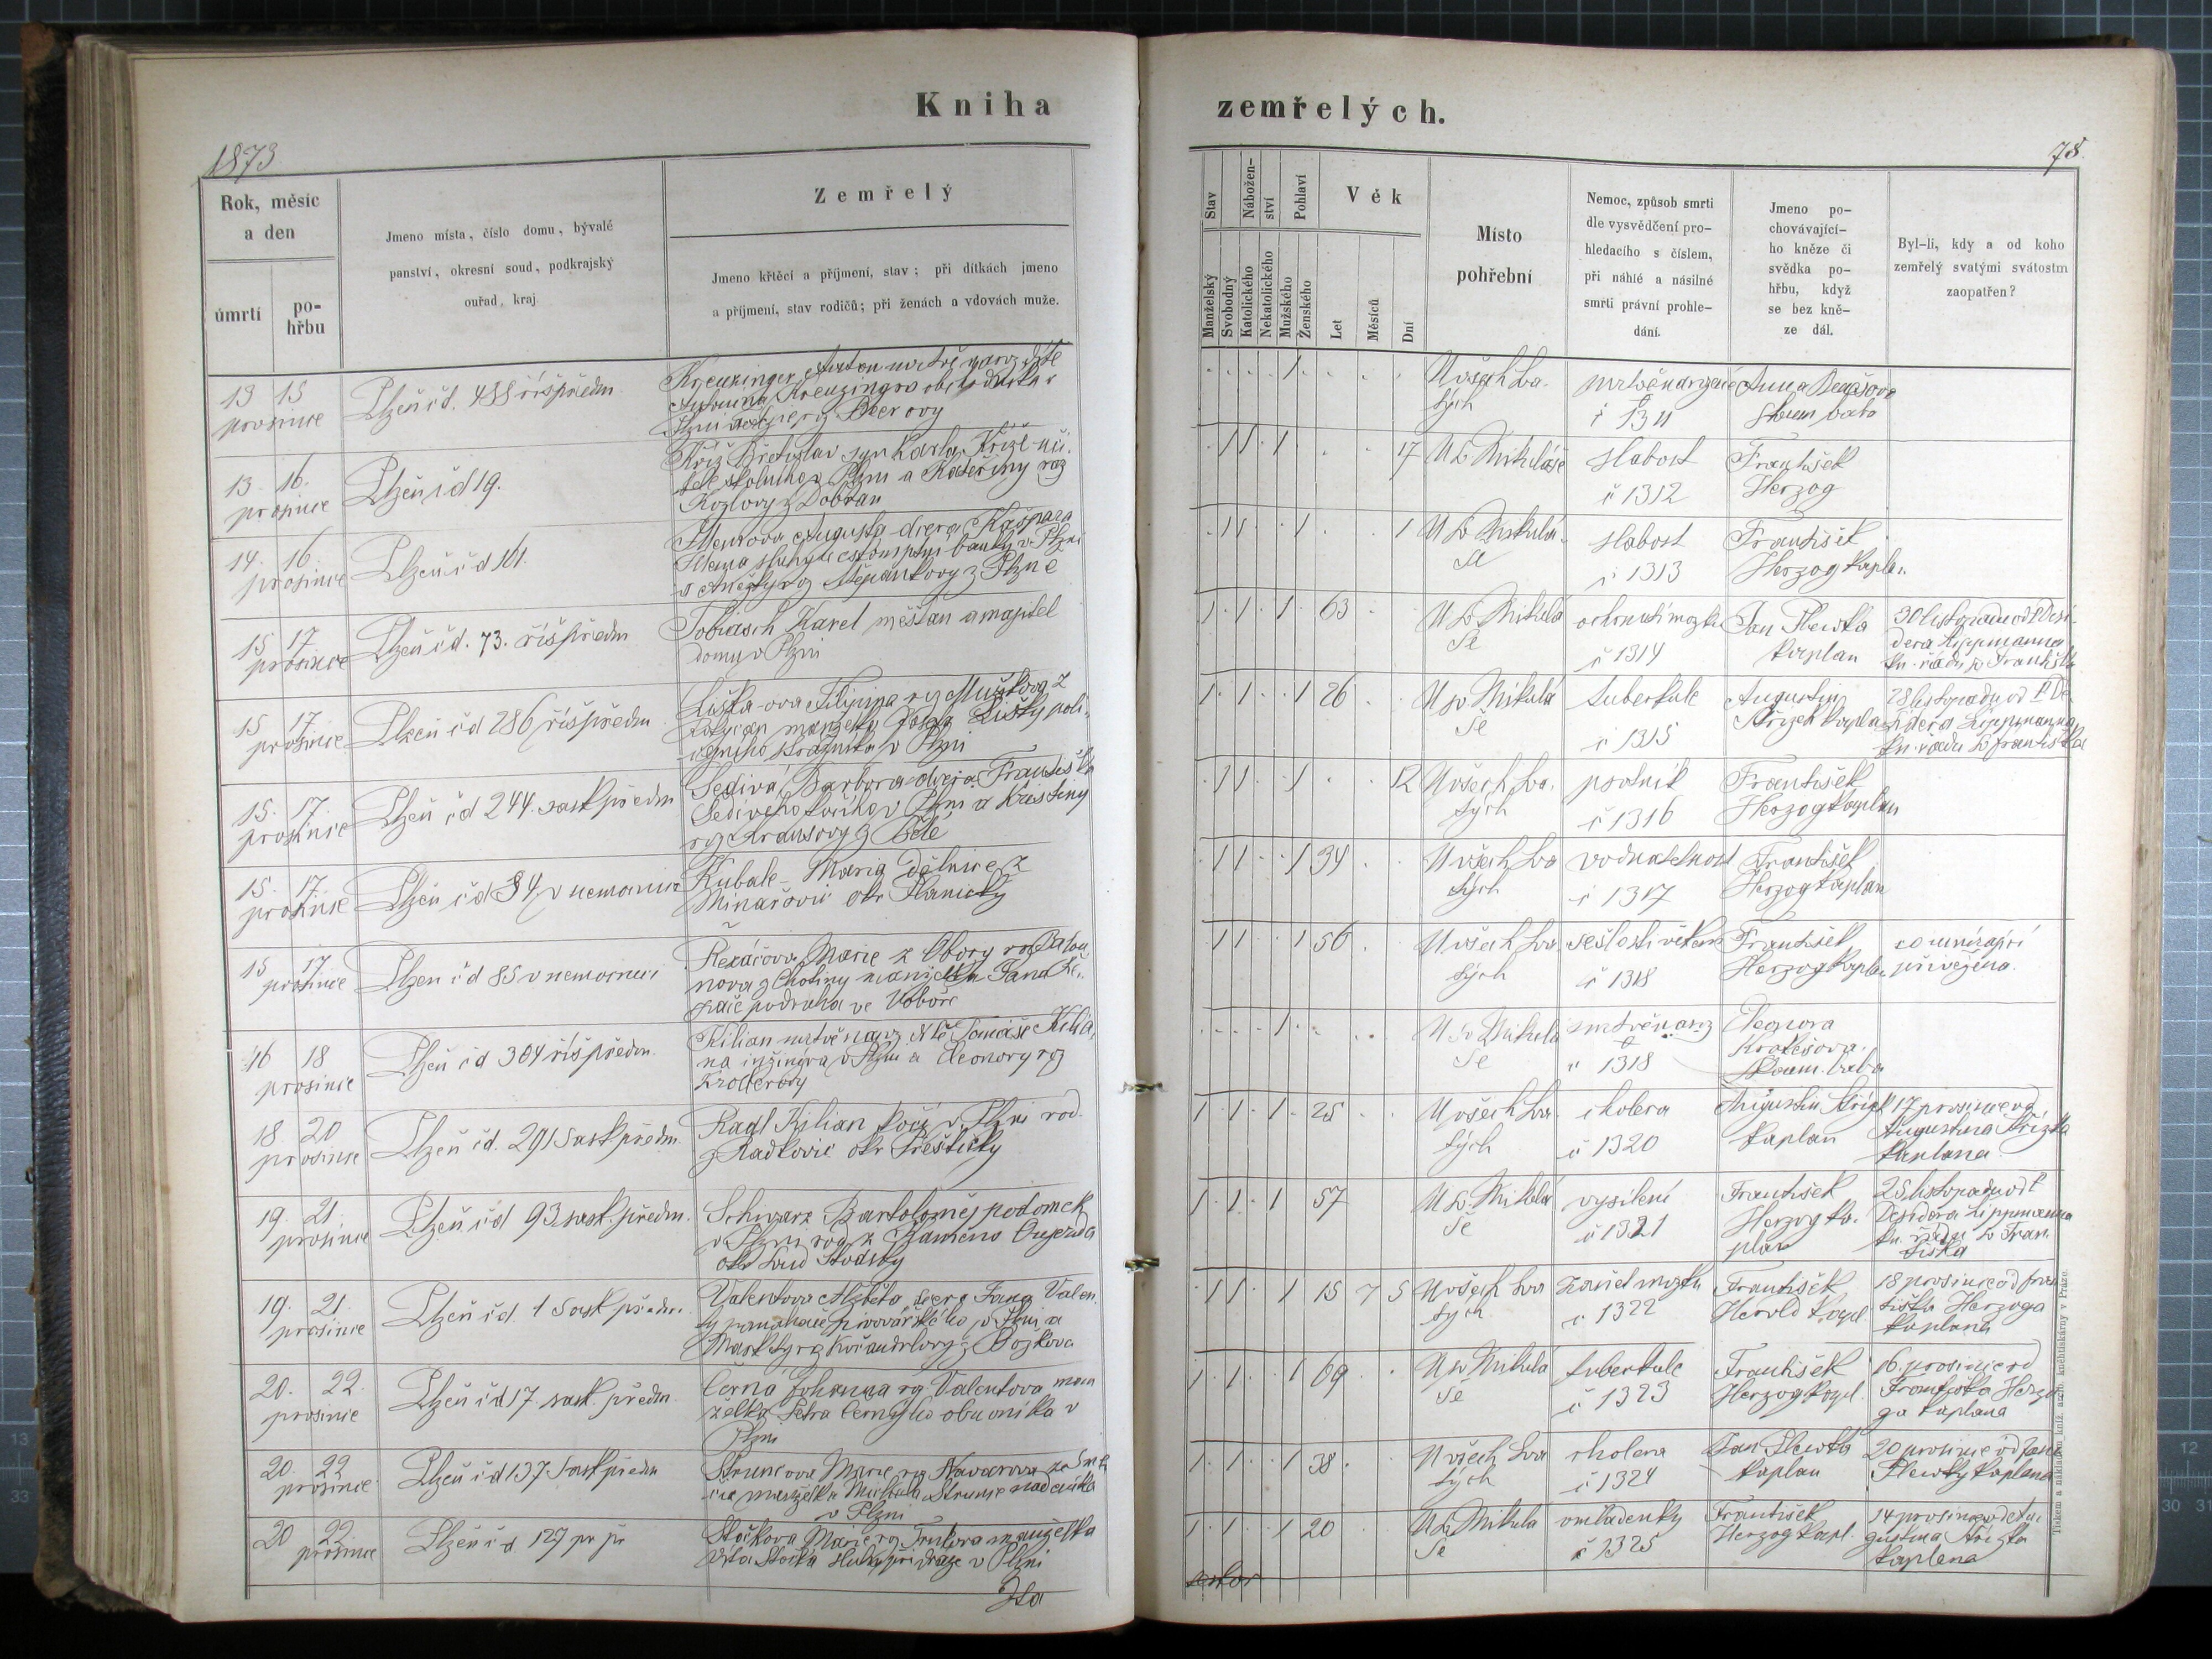 Kniha
zemřelých.
1873
78.
Rok, měsíc
a den
úmrtí
po-
hřbu
Jmeno místa, číslo domu, bývalé
panství, okresní soud, podkrajský
ouřad, kraj
Zemřelý
Jmeno křtěcí a příjmení, stav; při dítkách jmeno
a příjmení, stav rodičů; při ženách a vdovách muže.
Stav
Nábožen-
ství
Pohlaví
Věk
Manželský
Svobodný
Katolického
Nekatolického
Mužského
Ženského
Let
Měsíců
Dní
Místo
pohřební
Nemoc, způsob smrti
dle vysvědčení pro-
hledacího s číslem,
při náhlé a násilné
smrti právní prohle-
dání.
Jmeno po-
chovávající-
ho kněze či
svědka po-
hřbu, když
se bez kně-
ze dál.
Byl-li, kdy a od koho
zemřelý svatými svátostm
zaopatřen?
13 15
prosince
Plzeň čd. 438 říšpředm
Kreuzinger Anton mrtvě naroz dítě
Antonína Kreuzingra obchodníka v
1
U všech Sva-
tých
č 1311
13. 16.
prosince
Plzeň čd 19.
Kříž Břetislav syn Karla Kříže uči-
tele školního v Plzni a Kateřiny roz
Kozlovy z Dobřan
1 1 1 17
U sv. Mikuláše
slabost
č 1312
František
Herzog
14. 16.
prosince
Plzeň čd 161.
Augusta dcera Kašpara
v Plzni
Štěpánkovy z Plzně
1 1 1 1
U sv Mikulá-
še
slabost
č 1313
František
Herzog kaplan
15 17
prosince
Plzeň čd. 73. říšpředm
Tobiasch Karel měšťan a majitel
domu v Plzni
1 1 1 63
U sv Mikulá
še
ochrnutí mozku
č 1314
Jan Slewka
kaplan
30 listopadu od P Desi-
dera Lippmanna
kn. řádu sv Františka
15 17
prosince
Plzeň čd 286 říšpředm
Liška-ova Filipina
manželka Josefa Lišky poli-
cejního strážníka v Plzni
1 1 1 26
U sv Mikulá
še
tuberkule
č 1315
Augustin
Křížek kaplan
28 listopadu od P. De-
sidera Lippmanna
kn. řádu sv Františka
15. 17.
prosince
Plzeň čd 244. saskpředm
Šedivá Barbora dcera Františka
Šedivého v Plzni a Kristiny
rz Krausovy z Bělé
1 1 1 12
U všech Sva-
tých
psotník
č 1316
František
Herzog kaplan
15. 17.
prosince
Plzeň čd 84 v nemocnici
Kubale- Maria dělnice z
okr Plánický
1 1 1 34
U všech Sva
tých
vodnatelnost
č 1317
František
Herzog kaplan
15 17
prosince
Plzeň čd 85 v nemocnici
Řezáčova Marie z Obory
nova z Chotiny manželka Jana Ře-
záče podruha ve Voboře
1 1 1 56
U všech Sva
tých
sešlosti věkem
č 1318
František
Herzog kaplan
co umírající
přivežena.
16 18
prosince
Plzeň čd 304 říšpředm.
Kilian mrtvě naroz dítě Tomáše Kiliá-
na inžinýra v Plzni a Eleonory roz
1
U sv Mikulá
še
mrtvěnaroz
č 1318
Eleonora
Krolešova.
bába
18. 20
prosince
Plzeň čd. 291 Saskpředm.
Ragl Kilian kočí v Plzni rod.
z Radkovic okr Přeštický
1 1 1 25
U všech Sva
tých
cholera
č 1320
Augustin Křížek
kaplan
17 prosince od
Augustina Křížka
kaplana
19. 21.
prosince
Plzeň čd 93 sask. předm.
Schwarz Bartoloměj podomek
v Plzni roz z Kameno Oujezda
okr Soud Stodsky
1 1 1 57
U sv. Mikulá
še
vysílení
č 1321
František
Herzog ka-
plan
25 listopadu od P
Desidera Lippmanna
kn. řádu sv Fran
tiška
19. 21.
prosince
Plzeň čd. 1 Sask předm.
Valentova Alžběta dcera Jana Valen-
ty pomahače pivovářského v Plzni a
z Bojkova
1 1 1 15 7 5
U všech Sva
tých
zánět mozku
č 1322
František
Herold kapl
18 prosince od Fran
tiška Herzoga
kaplana
20. 22.
prosince
Plzeň čd 17. sask. předm
Černá Johanna rz Valentova man
želka Petra Černého obuvníka v
Plzni
1 1 1 69
U sv Mikulá
še
tuberkule
č 1323
František
Herzog kapl.
16. prosince od
Františka Herzo
ga kaplana
20. 22
prosince
Plzeň čd 137 Saskpředm
Struncova Marie rz Navarova
manželka Michala Strunce nadeníka
v Plzni
1 1 1 38.
U všech Sva
tých
cholera
č 1324
Jan Slewka
kaplan
20 prosince od Jana
Slewky kaplana
20 22
prosince
Plzeň čd. 127 pr př
Stočkova Marie rz manželka
Víta Stočka sluhy při dráze v Plzni
1 1 1 20
U sv Mikulá
še
omladenky
č 1325
František
Herzog kapl.
14 prosince od Au-
gustina Křížka
kaplana
Tiskem a nákladem kníž. arcib. knihtiskárny v Praze.